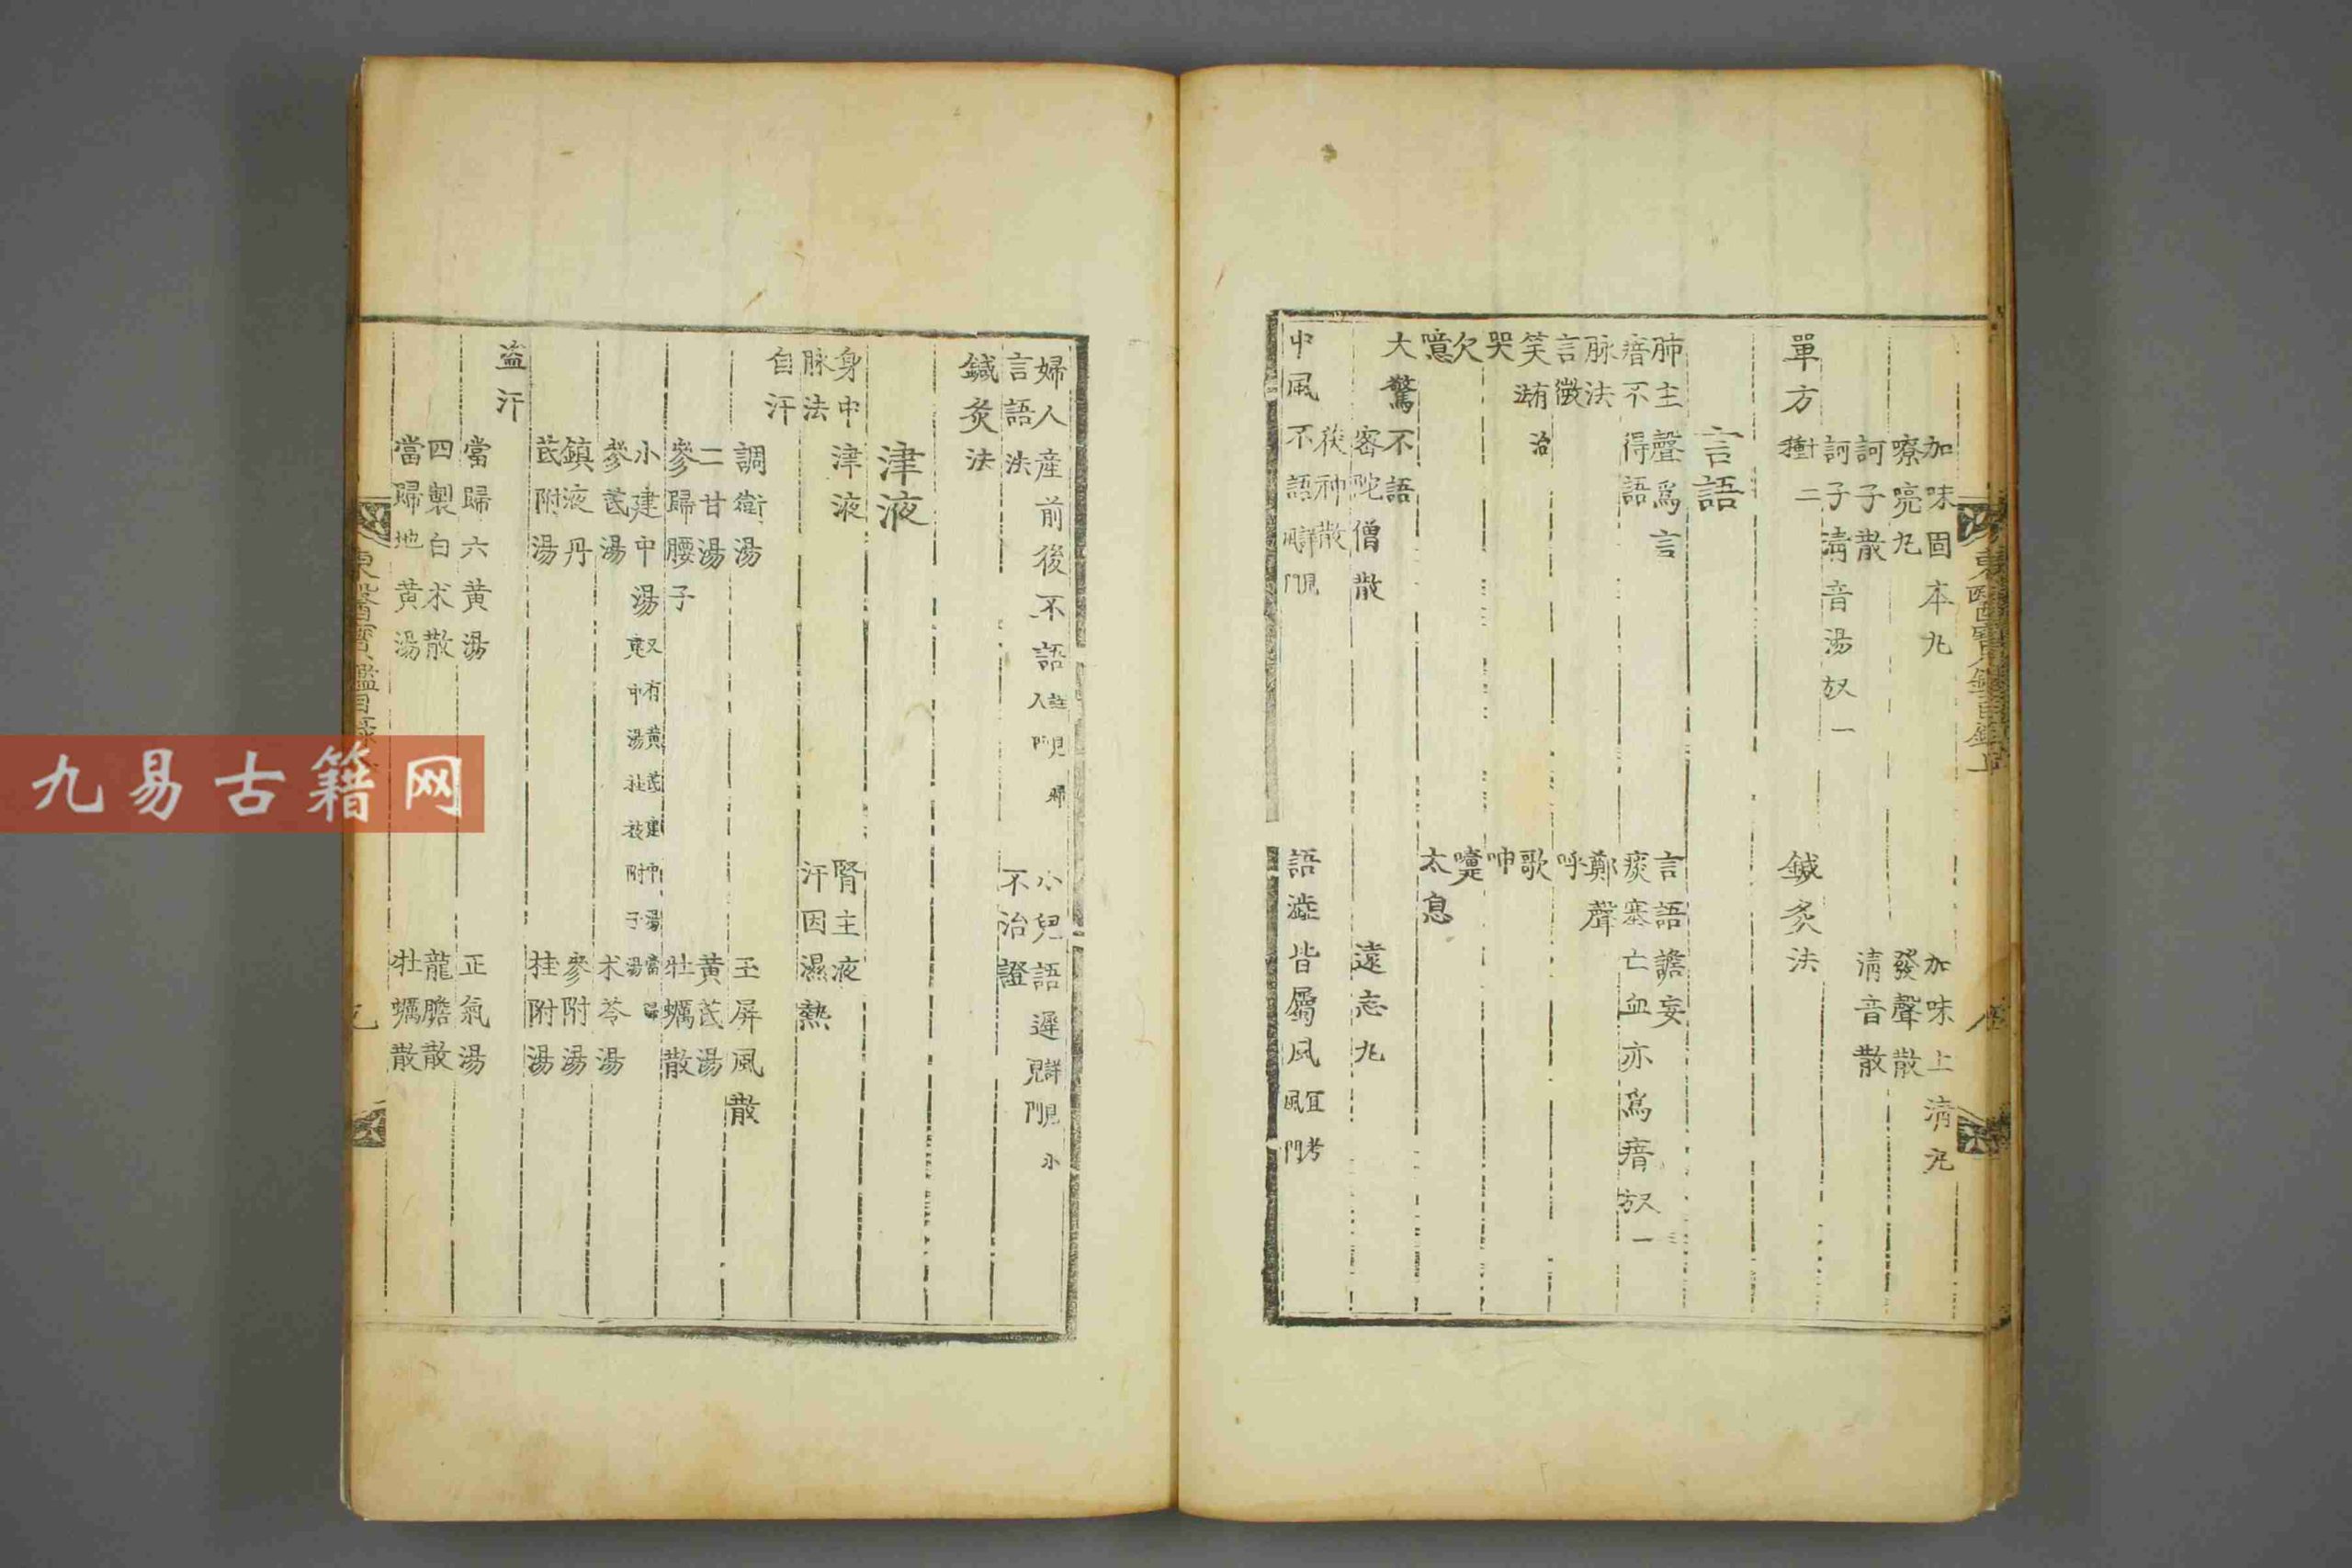 東醫寶鑑目錄上
加味固本丸
加味上清丸
嘹亮丸
發聲散
訶子散
清音散
訶子清音湯
單方
種二
鍼灸法
言語
肺主聲爲言
言語譫妄
瘖不得語
痰塞亡血亦爲瘖
脉法
鄭聲
言微
呼
笑
歌
哭
呻
欠
嚏
噫
太息
大驚不語
密陀僧散
遠志丸
茯神散
中風不語詳見風門
語澁皆屬風宜考風門
婦人産前後不語
小兒語遲
言語法
不治證
鍼灸法
津液
身中津液
腎主液
脉法
汗因濕熱
自汗
調衛湯
玉屏風散
二甘湯
黃芪湯
參歸腰子
牡蠣散
小建中湯
朮苓湯
參芪湯
鎮液丹
參附湯
芪附湯
桂附湯
盜汗
當歸六黃湯
正氣湯
四製白朮散
龍膽散
當歸地黃湯
牡蠣散
東醫寶鑑目錄
九易古籍网